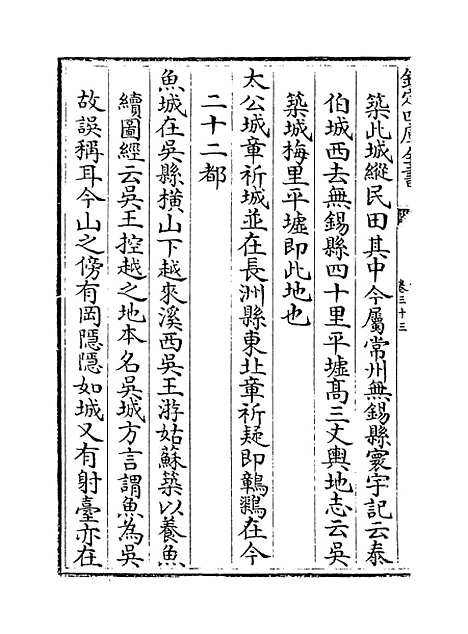 欽定四庫全書
卷三十三
築此城縱民田其中今屬常州無錫縣寰宇記云泰
伯城西去無錫縣四十里平墟髙三丈輿地志云吳
築城梅里平墟即此地也
太公城章祈城並在長洲縣東北章祈疑即鸊鷉在今
二十二都
魚城在吳縣横山下越來溪西吳王游姑蘇築以養魚
續圖經云吳王控越之地本名吳城方言謂魚為吳
故誤稱耳今山之傍有岡隠隠如城又有射臺亦在